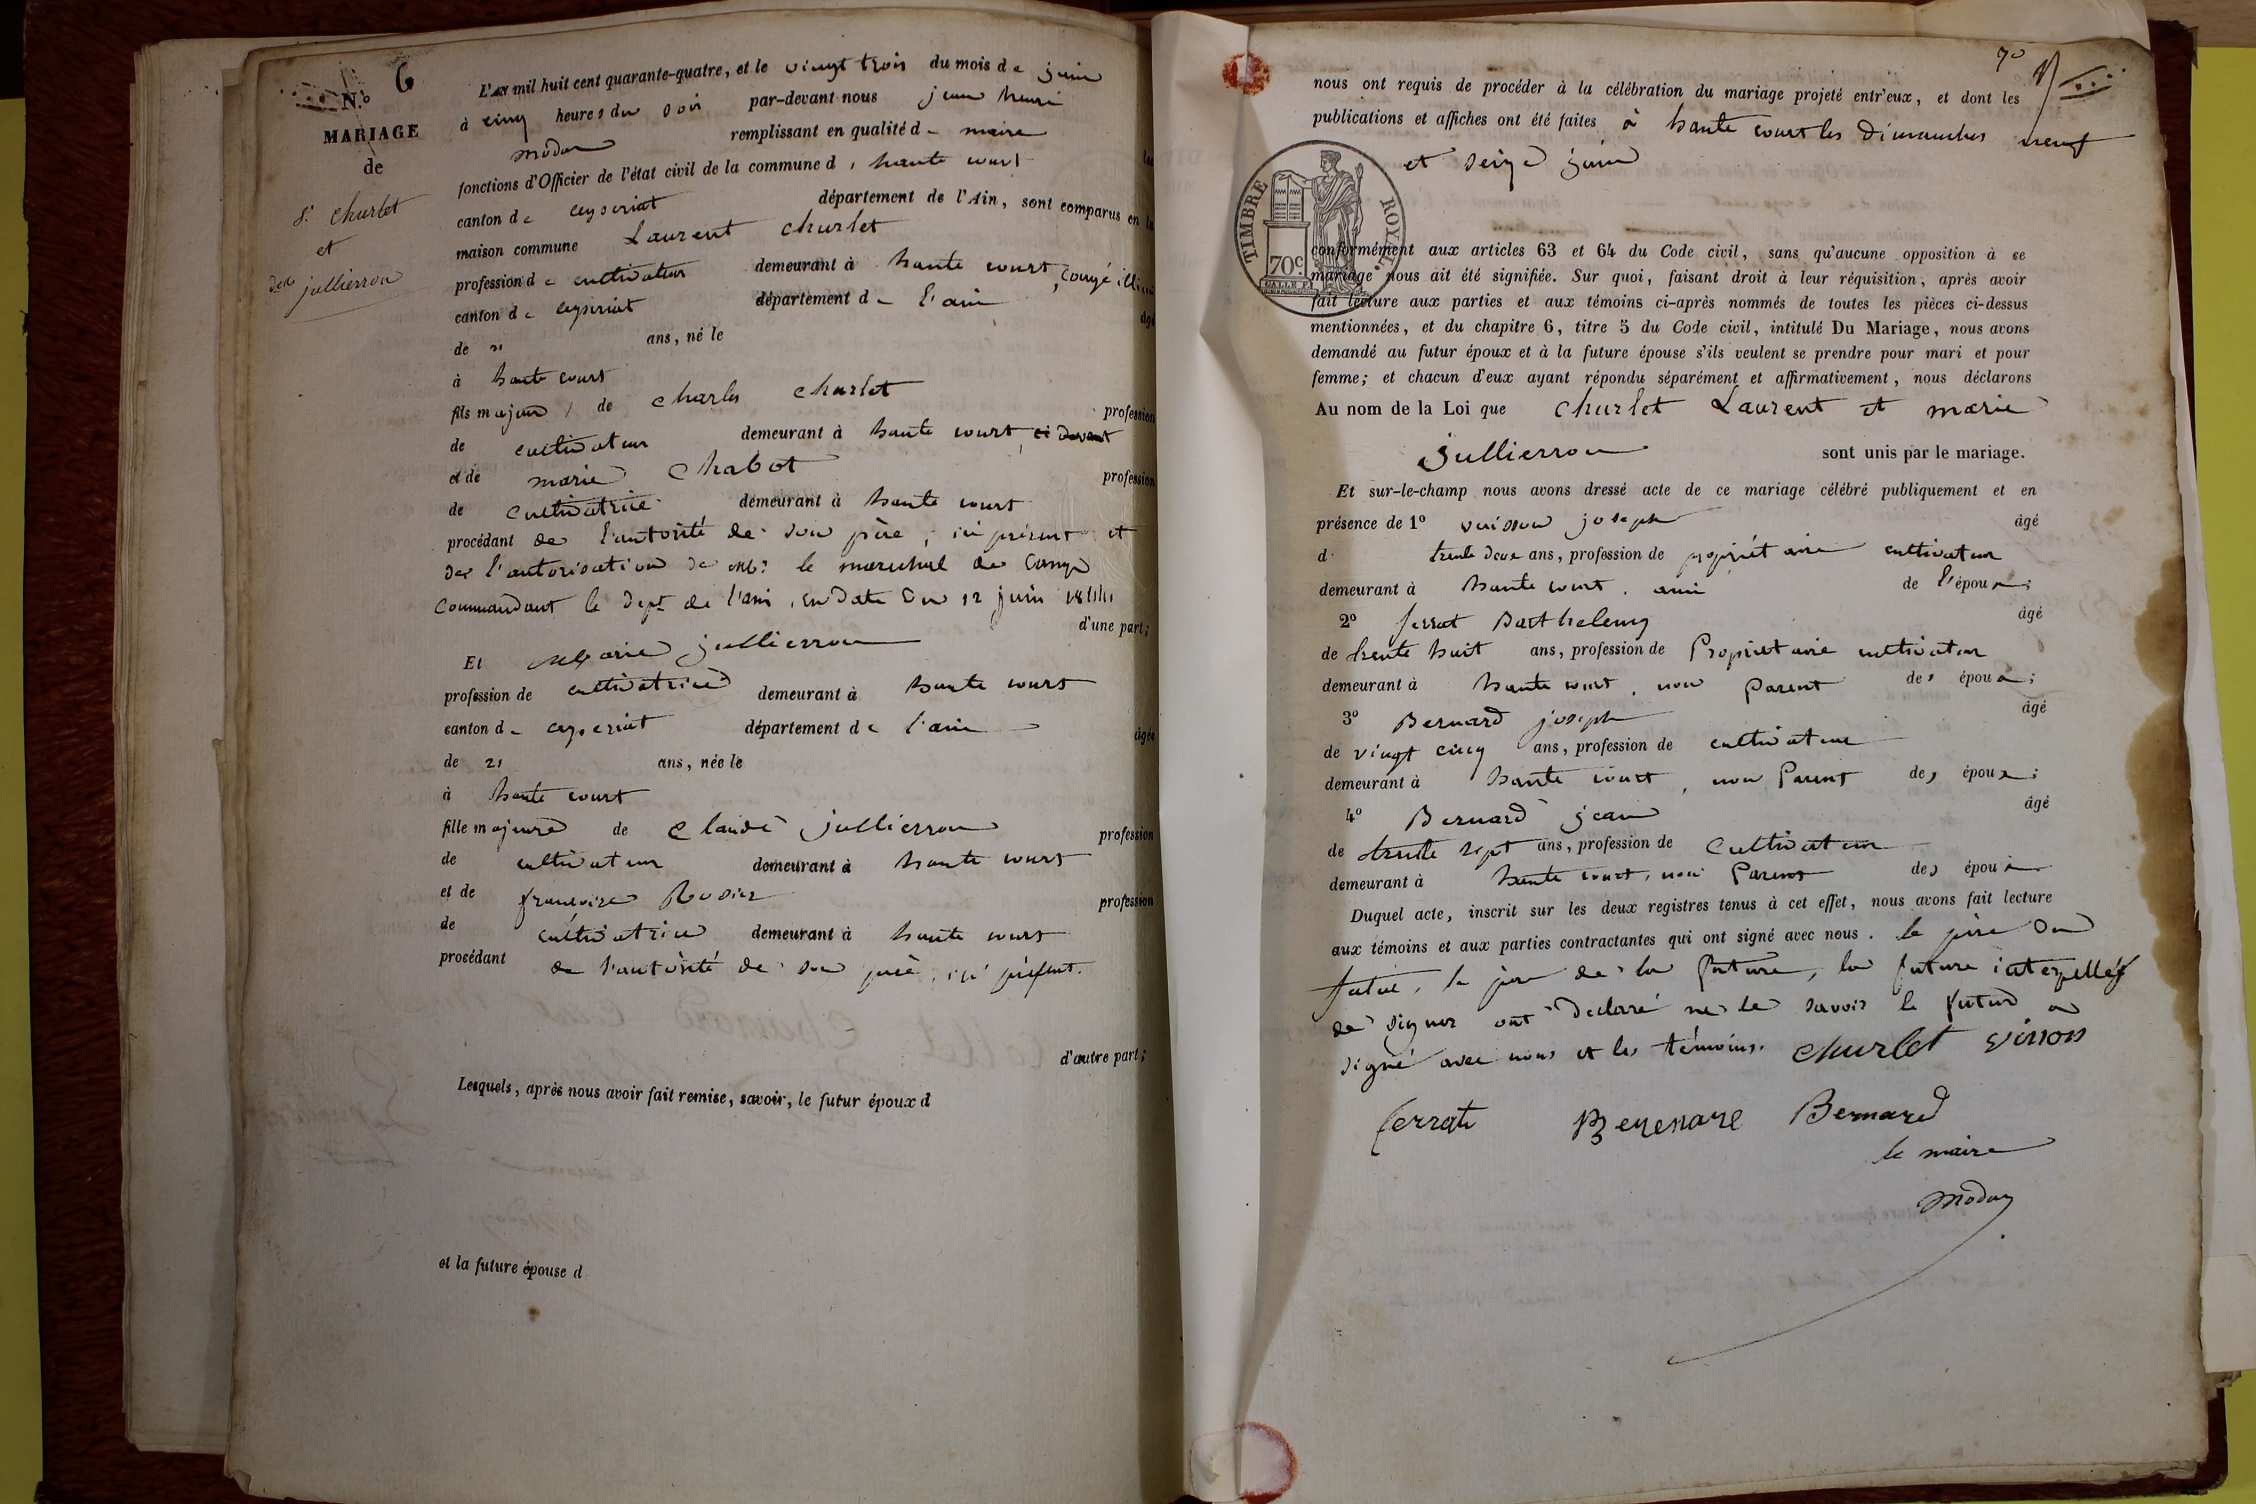 N.o 6
MARIAGE
de
Sr churlet
et
delle jullierron
L'AN mil huit cent quarante-quatre, et le vingt trois du mois de juin
à cinq heures du soir par-devant nous jean henri
modas remplissant en qualité de maire les
fonctions d'Officier de l'état civil de la commune d, haute court
canton de ceyseriat département de l'Ain, sont comparus en la
maison commune Laurent churlet
profession de cultivateur demeurant à haute court, Congé illim
canton de ceyseriat département de l'ain âgé
de 21 ans, né le
à haute court
fils majeur de charles churlet profession
de cultivateur demeurant à haute court, ci devant
et de marie chabot profession
de cultivatrice demeurant à haute court
procédant de l'autorité de son père, ici présent et
de l'autorisation de Mr le marechal de Camp
Commandant le dept de l'ain, en date du 12 juin 1844
d'une part;
Et Marie jullierron
profession de cultivatrice demeurant à haute court
canton de ceyseriat département de l'ain âgée
de 21 ans, née le
à haute court
fille majeure de claude jullierron profession
de cultivateur demeurant à haute court
et de françoise Rosier profession
de cultivatrice demeurant à haute court
procédant de l'autorité de son père, ici présent.
d'autre part;
Lesquels, après nous avoir fait remise, savoir, le futur époux d
et la future épouse d
70
nous ont requis de procéder à la célébration du mariage projeté entr'eux, et dont les
publications et affiches ont été faites à haute court les dimanches neuf
et seize juin
TIMBRE ROYAL.
70c
conformément aux articles 63 et 64 du Code civil, sans qu'aucune opposition à ce
mariage nous ait été signifiée. Sur quoi, faisant droit à leur réquisition, après avoir
fait lecture aux parties et aux témoins ci-après nommés de toutes les pièces ci-dessus
mentionnées, et du chapitre 6, titre 5 du Code civil, intitulé Du Mariage, nous avons
demandé au futur époux et à la future épouse s'ils veulent se prendre pour mari et pour
femme; et chacun d'eux ayant répondu séparément et affirmativement, nous déclarons
Au nom de la Loi que churlet Laurent et marie
jullierron sont unis par le mariage.
Et sur-le-champ nous avons dressé acte de ce mariage célébré publiquement et en
présence de 1o vuisson joseph âgé
d trente deux ans, profession de propriétaire cultivateur
demeurant à haute court, ami de l'époux;
2o ferrat Barthelemy âgé
de trente huit ans, profession de Propriétaire cultivateur
demeurant à haute court, non Parent des époux;
3o Bernard joseph âgé
de vingt cinq ans, profession de cultivateur
demeurant à haute court, non Parent des époux;
4o Bernard jean âgé
de trente sept ans, profession de cultivateur
demeurant à haute court, non Parent des époux
Duquel acte, inscrit sur les deux registres tenus à cet effet, nous avons fait lecture
aux témoins et aux parties contractantes qui ont signé avec nous. le père du
futur, le père de la future, la future interpellés
de signer ont déclaré ne le savoir le futur a
signé avec nous et les témoins. churlet vison
ferrat Berenare Bernard
le maire
modas